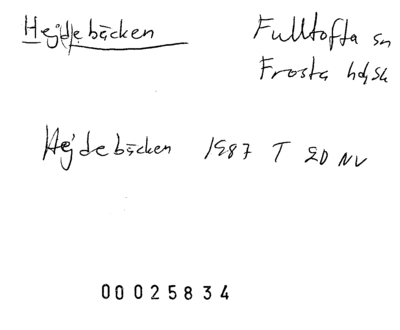 Hej(d)ebäcken
Fulltofta sn
Frosta hd, Sk
Hejdebäcken 1987 T 2D NV
00025834